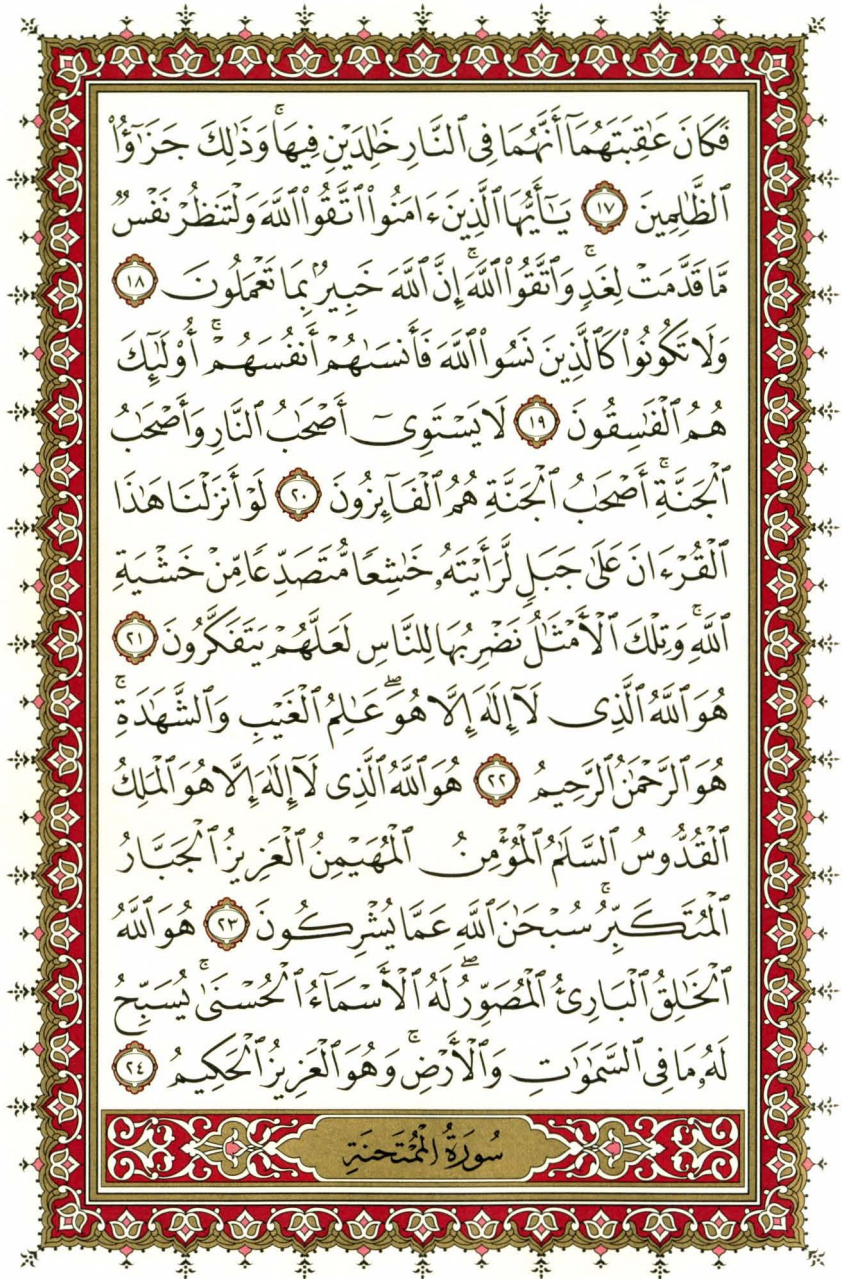 فَكَانَ عَٰقِبَتَهُمَآ أَنَّهُمَا فِى ٱلنَّارِ خَٰلِدَيْنِ فِيهَاۚ وَذَٰلِكَ جَزَٰٓؤُا۟
ٱلظَّٰلِمِينَ ١٧ يَٰٓأَيُّهَا ٱلَّذِينَ ءَامَنُوا۟ ٱتَّقُوا۟ ٱللَّهَ وَلْتَنظُرْ نَفْسٌ
مَّا قَدَّمَتْ لِغَدٍۚ وَٱتَّقُوا۟ ٱللَّهَۚ إِنَّ ٱللَّهَ خَبِيرٌۢ بِمَا تَعْمَلُونَ ١٨
وَلَا تَكُونُوا۟ كَٱلَّذِينَ نَسُوا۟ ٱللَّهَ فَأَنسَىٰهُمْ أَنفُسَهُمْۚ أُو۟لَٰٓئِكَ
هُمُ ٱلْفَٰسِقُونَ ١٩ لَا يَسْتَوِىٓ أَصْحَٰبُ ٱلنَّارِ وَأَصْحَٰبُ
ٱلْجَنَّةِۚ أَصْحَٰبُ ٱلْجَنَّةِ هُمُ ٱلْفَآئِزُونَ ٢٠ لَوْ أَنزَلْنَا هَٰذَا
ٱلْقُرْءَانَ عَلَىٰ جَبَلٍ لَّرَأَيْتَهُۥ خَٰشِعًا مُّتَصَدِّعًا مِّنْ خَشْيَةِ
ٱللَّهِۚ وَتِلْكَ ٱلْأَمْثَٰلُ نَضْرِبُهَا لِلنَّاسِ لَعَلَّهُمْ يَتَفَكَّرُونَ ٢١
هُوَ ٱللَّهُ ٱلَّذِى لَآ إِلَٰهَ إِلَّا هُوَۖ عَٰلِمُ ٱلْغَيْبِ وَٱلشَّهَٰدَةِۚ
هُوَ ٱلرَّحْمَٰنُ ٱلرَّحِيمُ ٢٢ هُوَ ٱللَّهُ ٱلَّذِى لَآ إِلَٰهَ إِلَّا هُوَ ٱلْمَلِكُ
ٱلْقُدُّوسُ ٱلسَّلَٰمُ ٱلْمُؤْمِنُ ٱلْمُهَيْمِنُ ٱلْعَزِيزُ ٱلْجَبَّارُ
ٱلْمُتَكَبِّرُۚ سُبْحَٰنَ ٱللَّهِ عَمَّا يُشْرِكُونَ ٢٣ هُوَ ٱللَّهُ
ٱلْخَٰلِقُ ٱلْبَارِئُ ٱلْمُصَوِّرُۖ لَهُ ٱلْأَسْمَآءُ ٱلْحُسْنَىٰۚ يُسَبِّحُ
لَهُۥ مَا فِى ٱلسَّمَٰوَٰتِ وَٱلْأَرْضِۚ وَهُوَ ٱلْعَزِيزُ ٱلْحَكِيمُ ٢٤
سُورَةُ الْمُمْتَحنَةِ